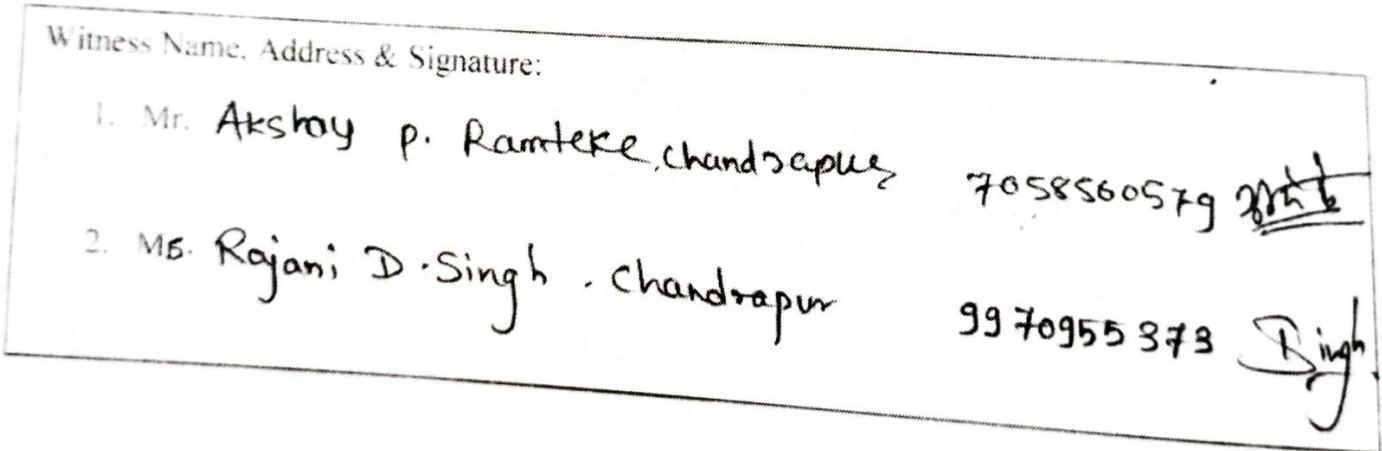 Witness Name, Address & Signature:
1. Mr. Akshay P. Ramteke, Chandrapur 7058560579
2. Ms. Rajani D. Singh. Chandrapur 9970955373 Singh